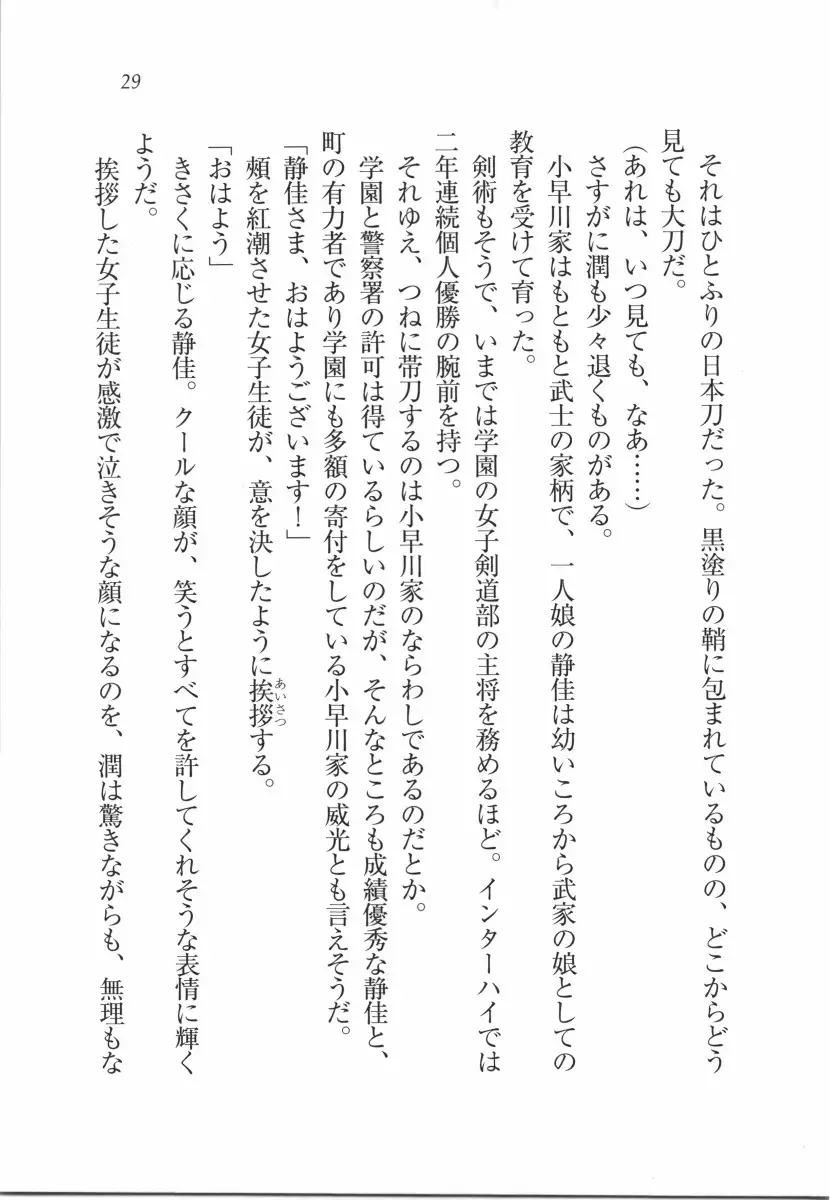 29
それはひとふりの日本刀だった。黒塗りの鞘に包まれているものの、どこからどう
見ても大刀だ。
(あれは、いつ見ても、なあ……)
さすがに潤も少々退くものがある。
小早川家はもともと武士の家柄で、一人娘の静佳は幼いころから武家の娘としての
教育を受けて育った。
剣術もそうで、いまでは学園の女子剣道部の主将を務めるほど。インターハイでは
二年連続個人優勝の腕前を持つ。
それゆえ、つねに帯刀するのは小早川家のならわしであるのだとか。
学園と警察署の許可は得ているらしいのだが、そんなところも成績優秀な静佳と、
町の有力者であり学園にも多額の寄付をしている小早川家の威光とも言えそうだ。
「静佳さま、おはようございます！」
頰を紅潮させた女子生徒が、意を決したように挨拶する。
あいさつ
「おはよう」
きさくに応じる静佳。クールな顔が、笑うとすべてを許してくれそうな表情に輝く
ようだ。
挨拶した女子生徒が感激で泣きそうな顔になるのを、潤は驚きながらも、無理もな